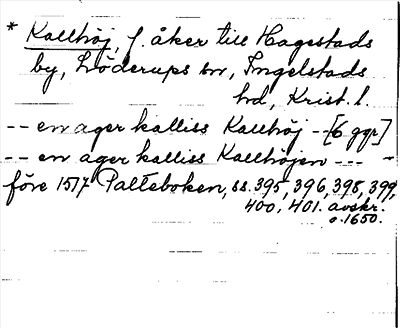 * Kallhöj, f. åker till Hagestads
by, Löderups sn, Ingelstads
hd, Krist. l.
-- en ager kalliss Kallhöj -- [6 ggr]
-- en ager kalliss Kallhöjen --- -
före 1517 Palteboken, ss. 395, 396, 398, 399,
400, 401. avskr.
o. 1650.